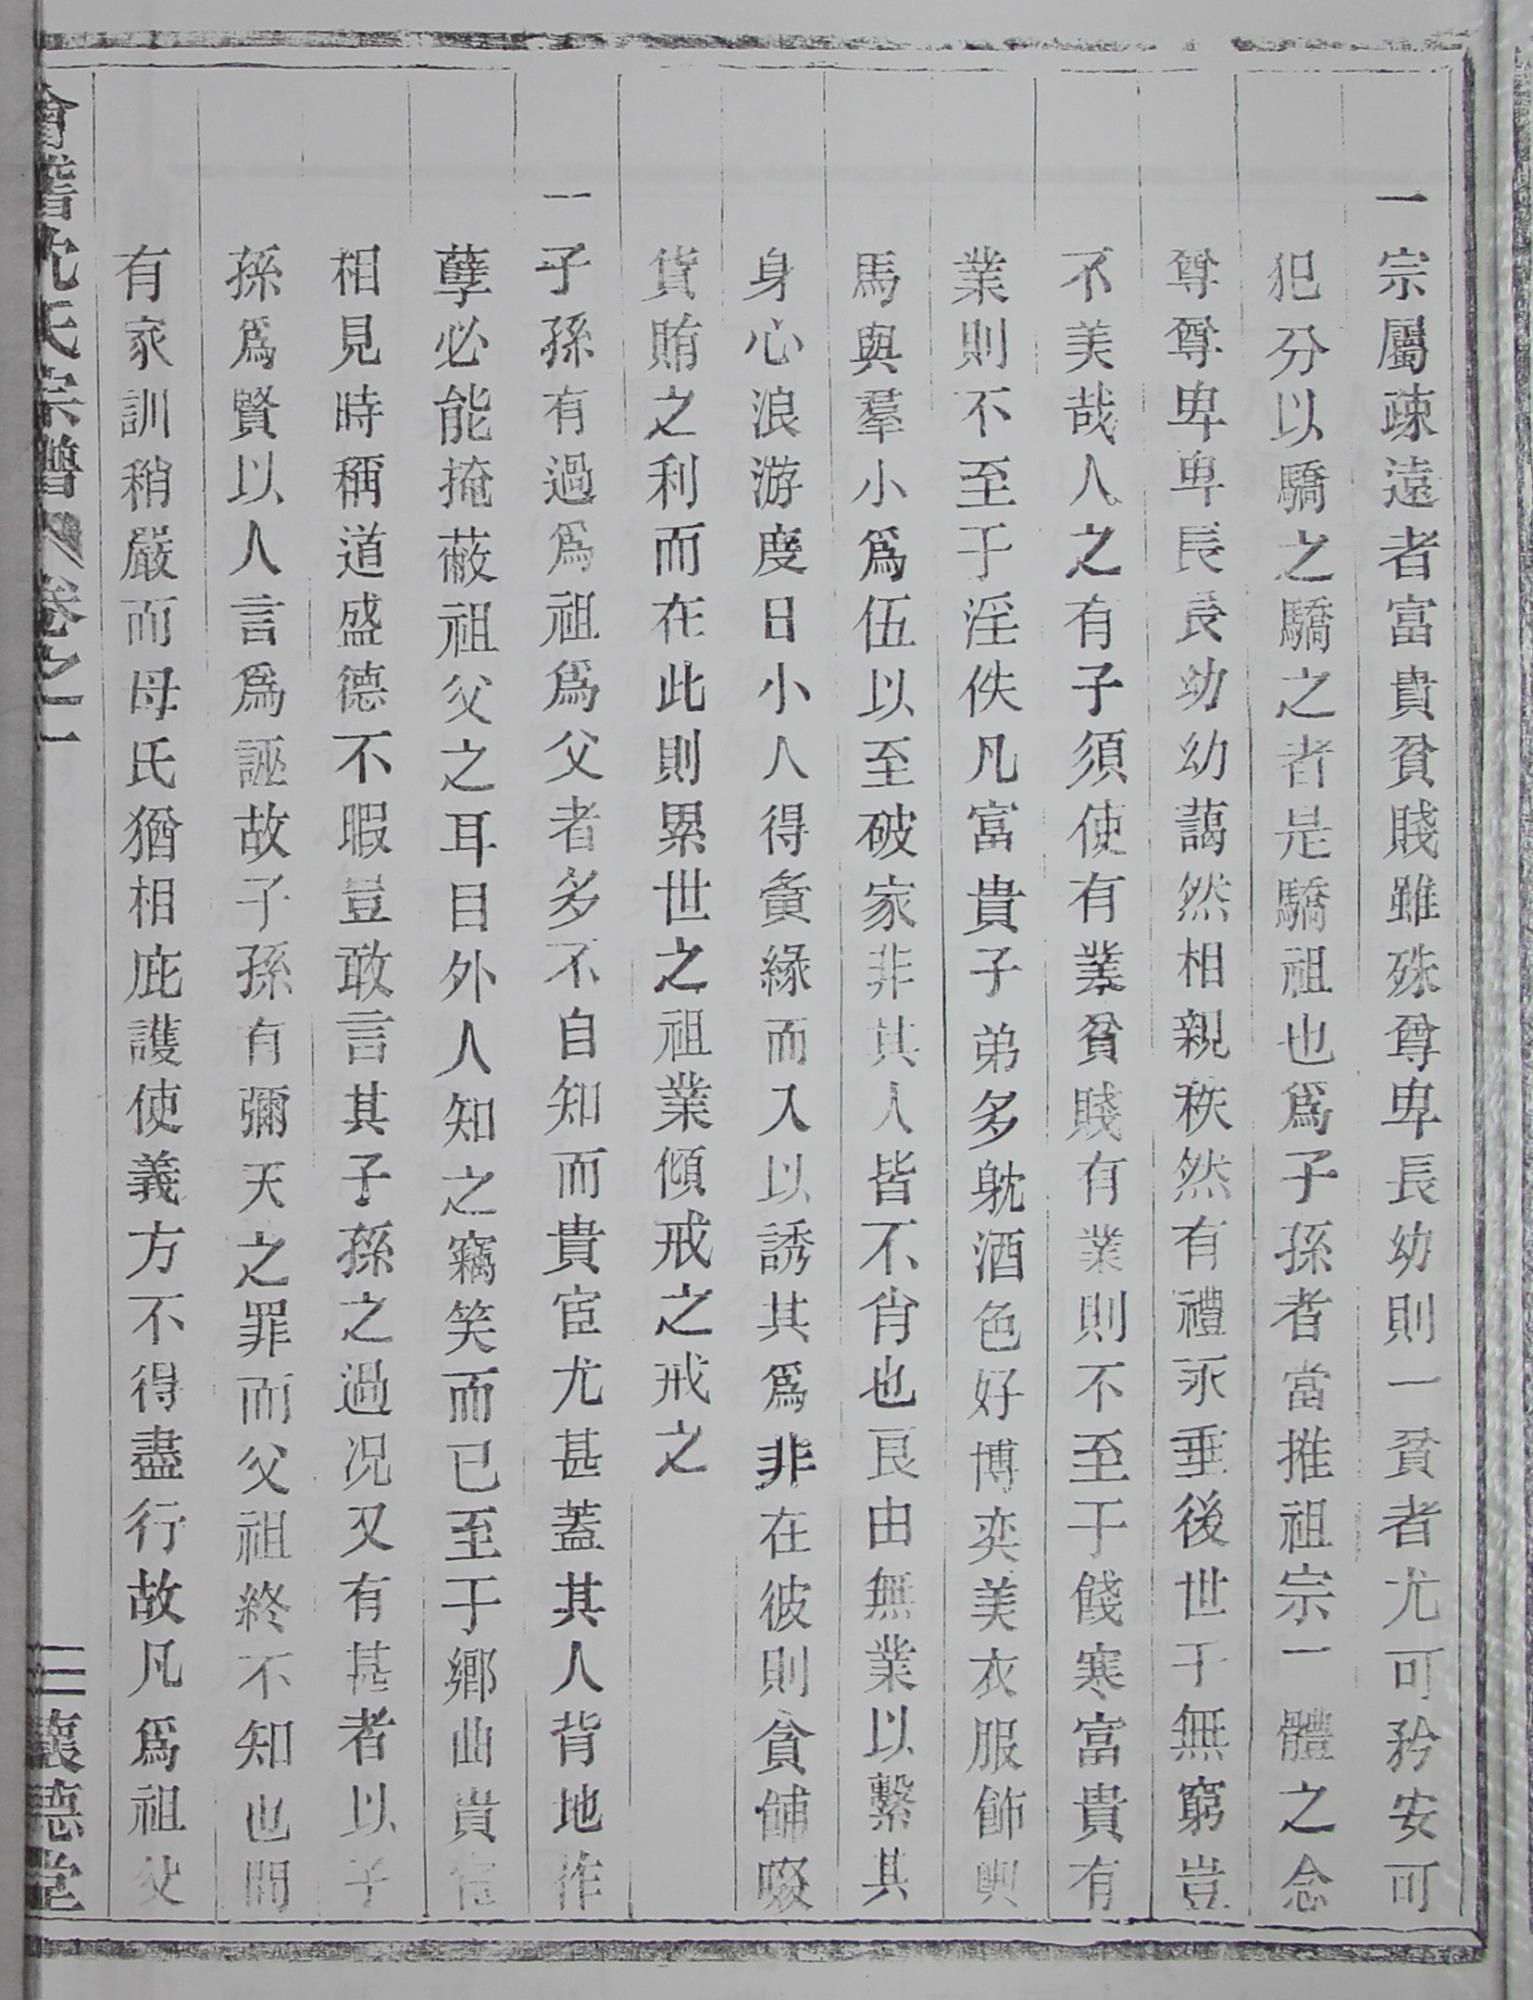 一宗屬疎遠者富貴貧賤雖殊尊卑長幼則一貧者尤可矜安可
犯分以驕之驕之者是驕祖也爲子孫者當推祖宗一體之念
尊尊卑卑長長幼幼藹然相親秩然有禮永垂後世于無窮豈
不美哉人之有子須使有業貧賤有業則不至于餞寒富貴有
業則不至于淫佚凡富貴子弟多躭酒色好博奕美衣服飾輿
馬與羣小爲伍以至破家非其人皆不肖也良由無業以繫其
身心浪游度日小人得夤緣而入以誘其爲非在彼則貪餔啜
貨賄之利而在此則累世之祖業傾戒之戒之
一子孫有過爲祖爲父者多不自知而貴宦尤甚蓋其人背地作
孽必能掩蔽祖父之耳目外人知之竊笑而已至于鄉曲貴宦
相見時稱道盛德不暇豈敢言其子孫之過况又有甚者以子
孫爲賢以人言爲誣故子孫有彌天之罪而父祖終不知也間
有家訓稍嚴而母氏猶相庇護使義方不得盡行故凡爲祖父
會稽沈氏宗譜 卷之一 三 懷德堂